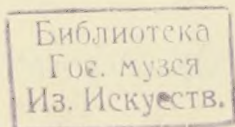 Библиотека
Гос. музея
Из. Искуств.